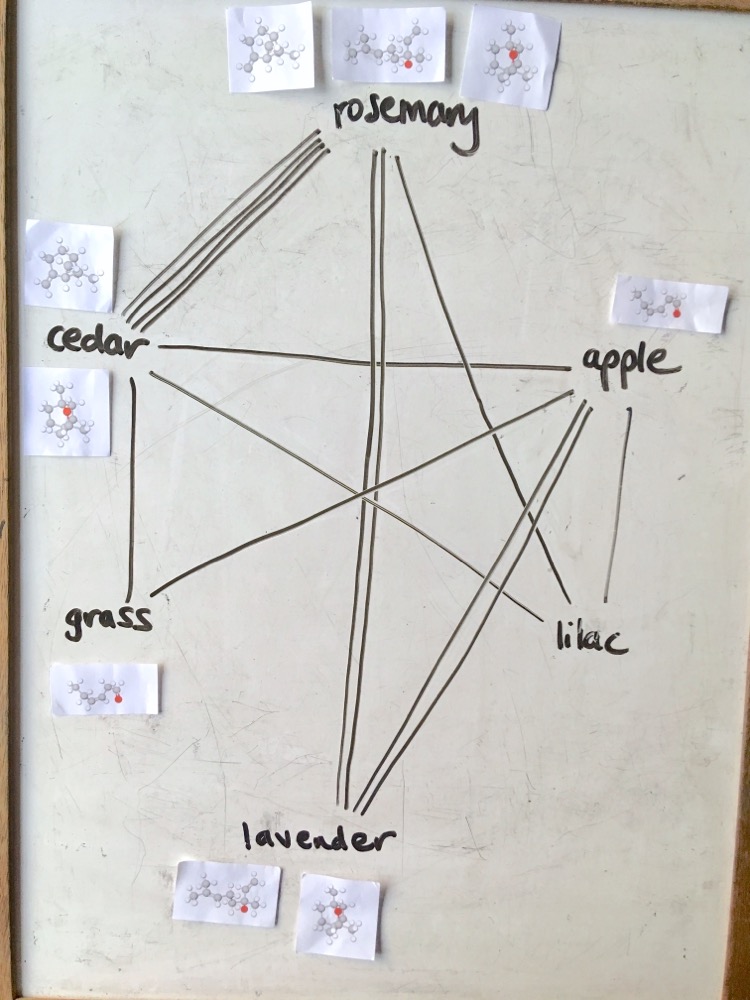 rosemary
cedar
apple
grass
lilac
lavender